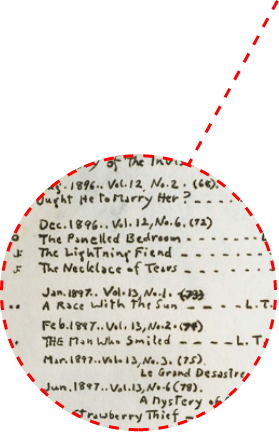 of The Invis
Aug. 1896.. Vol. 12, No. 2. (68).
Ought He to Marry Her? - - - -
Dec. 1896.. Vol. 12, No. 6. (72)
The Panelled Bedroom - - - - - - L.
5 The Lightning Fiend - - - - - -
5 The Necklace of Tears - - - - -
Jan. 1897.. Vol. 13, No. 1. (73)
A Race With the Sun - - - - L.T.
Feb. 1897.. Vol. 13, No. 2. (74)
THE Man Who Smiled - - - - - L.T.
Mar. 1897.. Vol. 13, No. 3. (75).
Le Grand Desastre
Jun. 1897.. Vol. 13, No. 6 (78).
A mystery of
Strawberry Thief - -